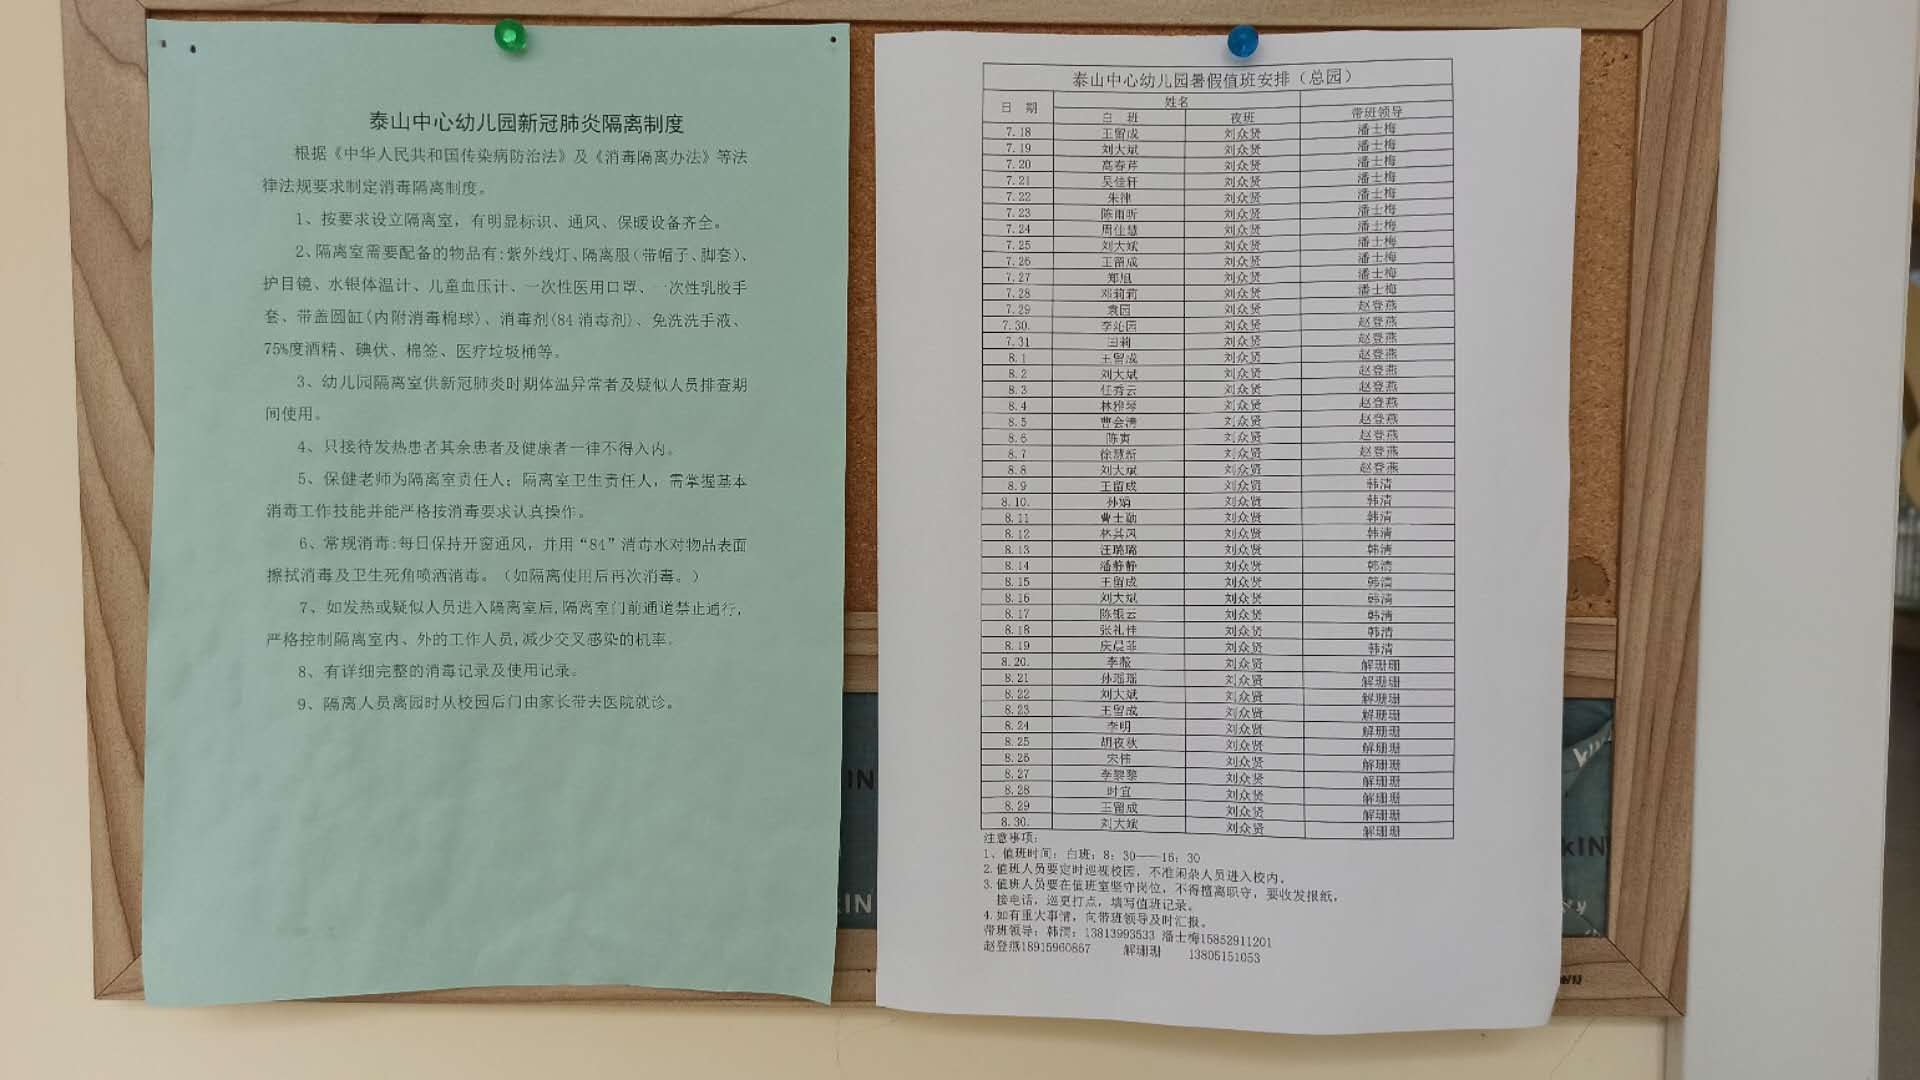 泰山中心幼儿园新冠肺炎隔离制度
根据《中华人民共和国传染病防治法》及《消毒隔离办法》等法
律法规要求制定消毒隔离制度。
1、按要求设立隔离室，有明显标识、通风、保暖设备齐全。
2、隔离室需要配备的物品有:紫外线灯、隔离服(带帽子、脚套)、
护目镜、水银体温计、儿童血压计、一次性医用口罩、一次性乳胶手
套、带盖圆缸(内附消毒棉球)、消毒剂(84消毒剂)、免洗洗手液、
75%度酒精、碘伏、棉签、医疗垃圾桶等。
3、幼儿园隔离室供新冠肺炎时期体温异常者及疑似人员排查期
间使用。
4、只接待发热患者其余患者及健康者一律不得入内。
5、保健老师为隔离室责任人；隔离室卫生责任人，需掌握基本
消毒工作技能并能严格按消毒要求认真操作。
6、常规消毒:每日保持开窗通风，并用“84”消毒水对物品表面
擦拭消毒及卫生死角喷洒消毒。（如隔离使用后再次消毒。）
7、如发热或疑似人员进入隔离室后,隔离室门前通道禁止通行,
严格控制隔离室内、外的工作人员,减少交叉感染的机率。
8、有详细完整的消毒记录及使用记录。
9、隔离人员离园时从校园后门由家长带去医院就诊。
泰山中心幼儿园暑假值班安排（总园）
日 期 姓名
白 班 夜班 带班领导
7.18 王留成 刘众贤 潘士梅
7.19 刘大斌 刘众贤 潘士梅
7.20 高春芹 刘众贤 潘士梅
7.21 吴佳轩 刘众贤 潘士梅
7.22 朱律 刘众贤 潘士梅
7.23 陈雨昕 刘众贤 潘士梅
7.24 周佳慧 刘众贤 潘士梅
7.25 刘大斌 刘众贤 潘士梅
7.26 王留成 刘众贤 潘士梅
7.27 郑旭 刘众贤 潘士梅
7.28 邓莉莉 刘众贤 潘士梅
7.29 袁园 刘众贤 赵登燕
7.30. 李沁园 刘众贤 赵登燕
7.31 田莉 刘众贤 赵登燕
8.1 王留成 刘众贤 赵登燕
8.2 刘大斌 刘众贤 赵登燕
8.3 任秀云 刘众贤 赵登燕
8.4 林雅琴 刘众贤 赵登燕
8.5 曹会涛 刘众贤 赵登燕
8.6 陈寅 刘众贤 赵登燕
8.7 徐慧新 刘众贤 赵登燕
8.8 刘大斌 刘众贤 赵登燕
8.9 王留成 刘众贤 韩清
8.10. 孙娟 刘众贤 韩清
8.11 曹士勤 刘众贤 韩清
8.12 林其凤 刘众贤 韩清
8.13 汪璐璐 刘众贤 韩清
8.14 潘静静 刘众贤 韩清
8.15 王留成 刘众贤 韩清
8.16 刘大斌 刘众贤 韩清
8.17 陈银云 刘众贤 韩清
8.18 张礼佳 刘众贤 韩清
8.19 庆晨菲 刘众贤 韩清
8.20. 李薇 刘众贤 解珊珊
8.21 孙瑶瑶 刘众贤 解珊珊
8.22 刘大斌 刘众贤 解珊珊
8.23 王留成 刘众贤 解珊珊
8.24 李明 刘众贤 解珊珊
8.25 胡夜秋 刘众贤 解珊珊
8.26 宋伟 刘众贤 解珊珊
8.27 李黎黎 刘众贤 解珊珊
8.28 时宜 刘众贤 解珊珊
8.29 王留成 刘众贤 解珊珊
8.30. 刘大斌 刘众贤 解珊珊
注意事项:
1、值班时间：白班：8：30——16：30
2.值班人员要定时巡视校园，不准闲杂人员进入校内。
3.值班人员要在值班室坚守岗位，不得擅离职守，要收发报纸，
接电话，巡更打点，填写值班记录。
4.如有重大事情，向带班领导及时汇报。
带班领导：韩清：13813993533 潘士梅15852911201
赵登燕18915960867 解珊珊 13805151053